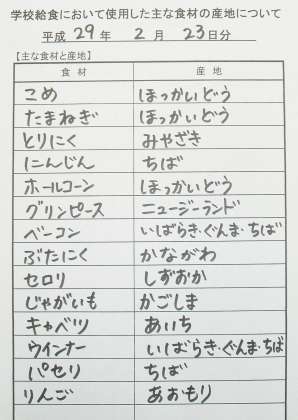 学校給食において使用した主な食材の産地について
平成 29 年 2 月 23 日分
【主な食材と産地】
食材 産地
こめ ほっかいどう
たまねぎ ほっかいどう
とりにく みやざき
にんじん ちば
ホールコーン ほっかいどう
グリンピース ニュージーランド
ベーコン いばらき・ぐんま・ちば
ぶたにく かながわ
セロリ しずおか
じゃがいも かごしま
キャベツ あいち
ウインナー いばらき・ぐんま・ちば
パセリ ちば
りんご あおもり